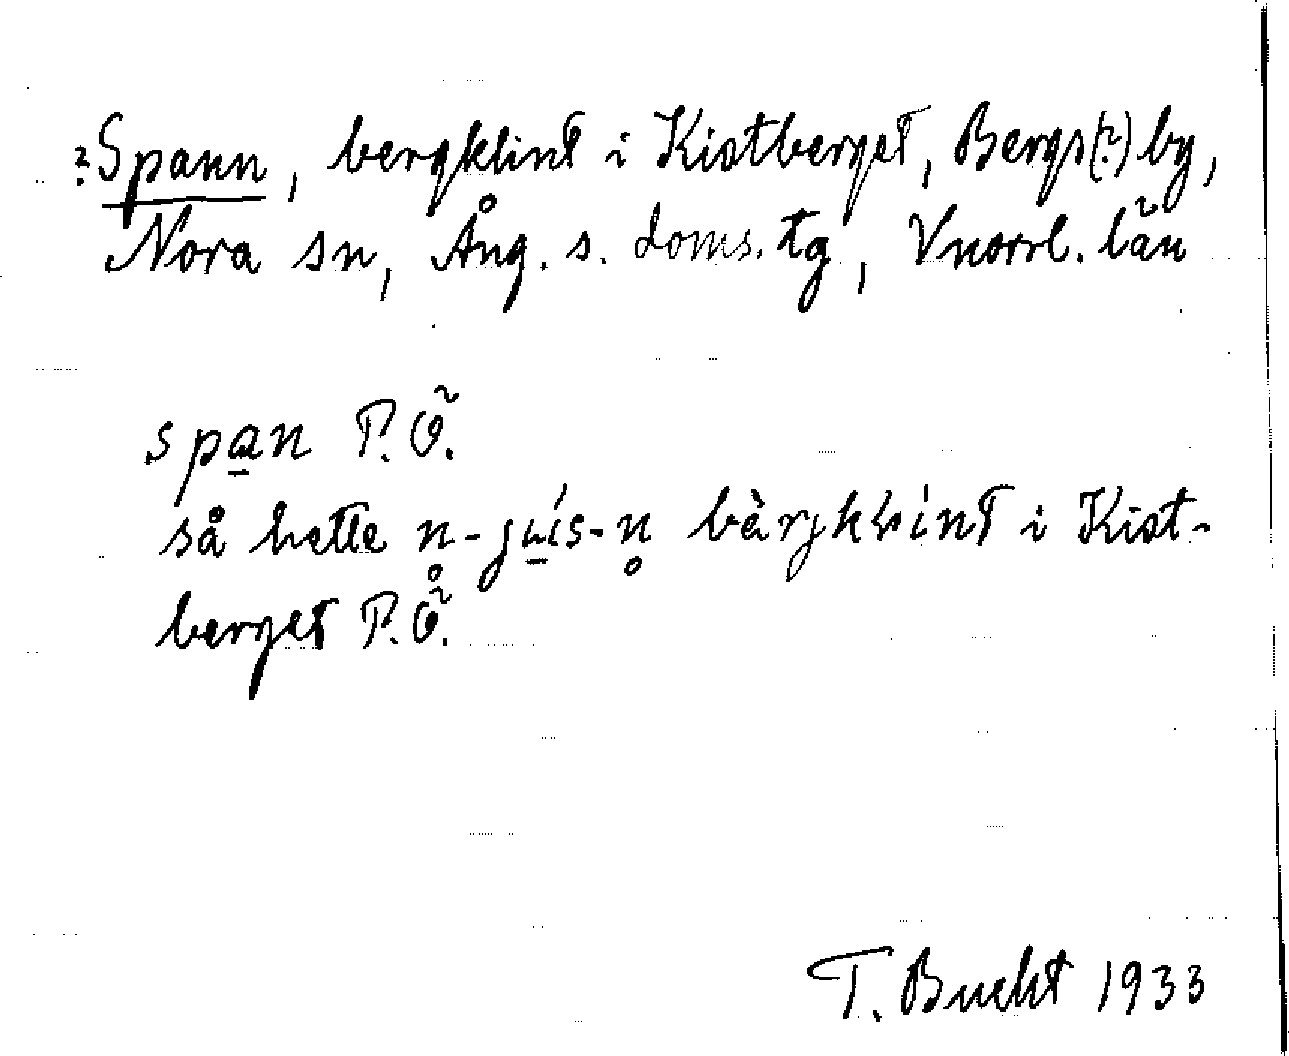 ?Spann, bergklint i Kistberget, Bergs(?) by,
Nora sn, Ång. s. doms. tg, Vnorrl. län
span P.Ö.
så hette bärjklint i Kist-
berget P.Ö.
T. Bucht 1933